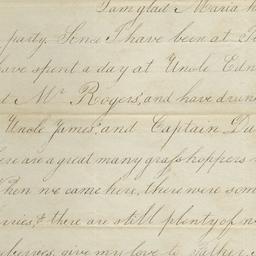 I am glad Maria h
party. Since I have been at
have spent a day at Uncle Edw
d Mr Rogers', and have drun
Uncle James', and Captain Du
ere are a great many grasshoppers
When we came here, there were som
rries, & there are still plenty of
eberries, give my love to Father,